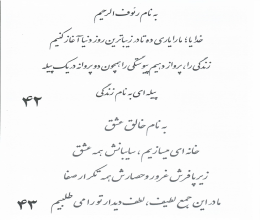 به نام رئوف الرحیم
خدایا؛ ما را یاری ده تا در زیباترین روز دنیا آغاز کنیم
زندگی را، پرواز دهیم پیوستگی را همچون دو پروانه در یک پیله
پیله ای به نام زندگی
۴۲
به نام خالق عشق
خانه ای میسازیم، سایبانش همه عشق
زیر پا فرش غرور و حصارش همه تکرار صفا
ما در این جمع لطیف، لطف دیدار تو را می طلبیم
۴۳